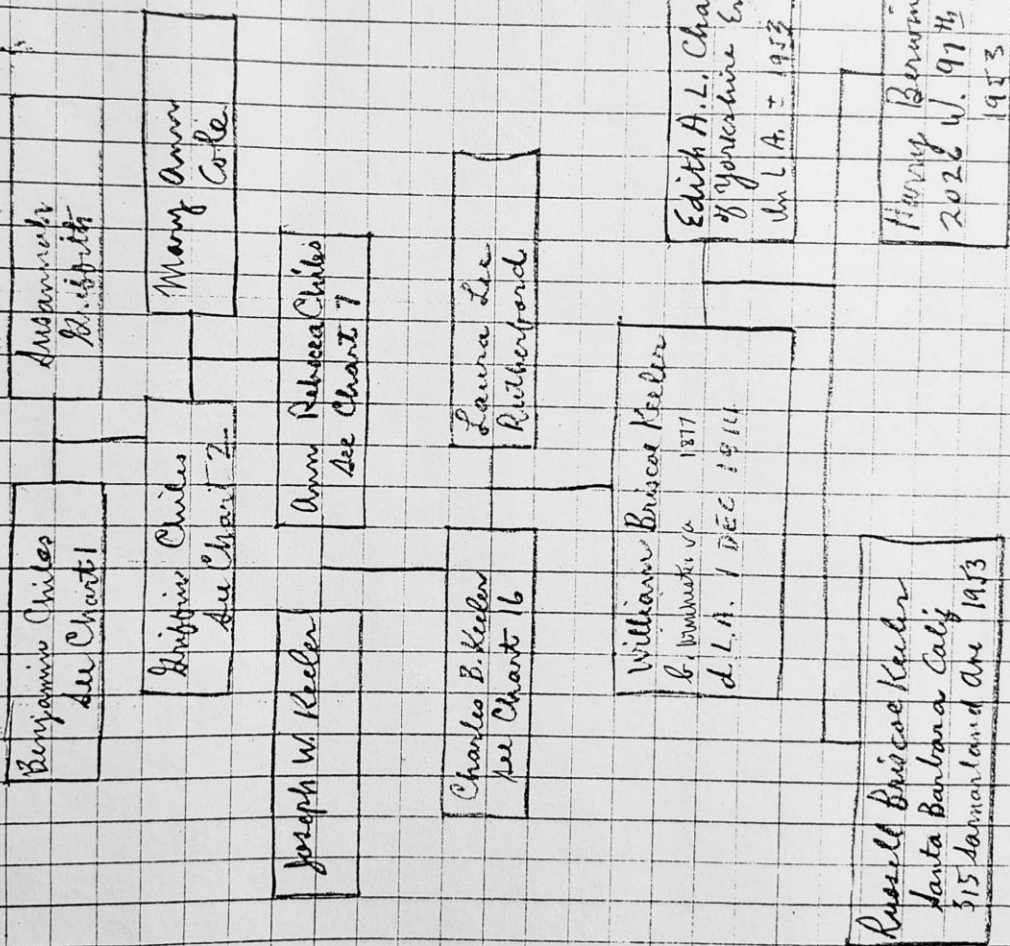 Benjamin Chiles
See Chart 1
Susannah
Griffith
Griffin Chiles
See Chart 2
Mary Ann
Cole
Joseph W. Keeler
Ann Rebecca Chiles
See Chart 7
Charles B. Keeler
See Chart 16
Laura Lee
Rutherford
William Briscoe Keeler
b. Va 1877
d. L.A. 1 DEC
Edith A. L. Cha
of Yorkshire En
In L.A. - 1953
Russell Briscoe Keeler
Santa Barbara Calif
315 Samarland Ave 1953
2026 W. 97th
1953